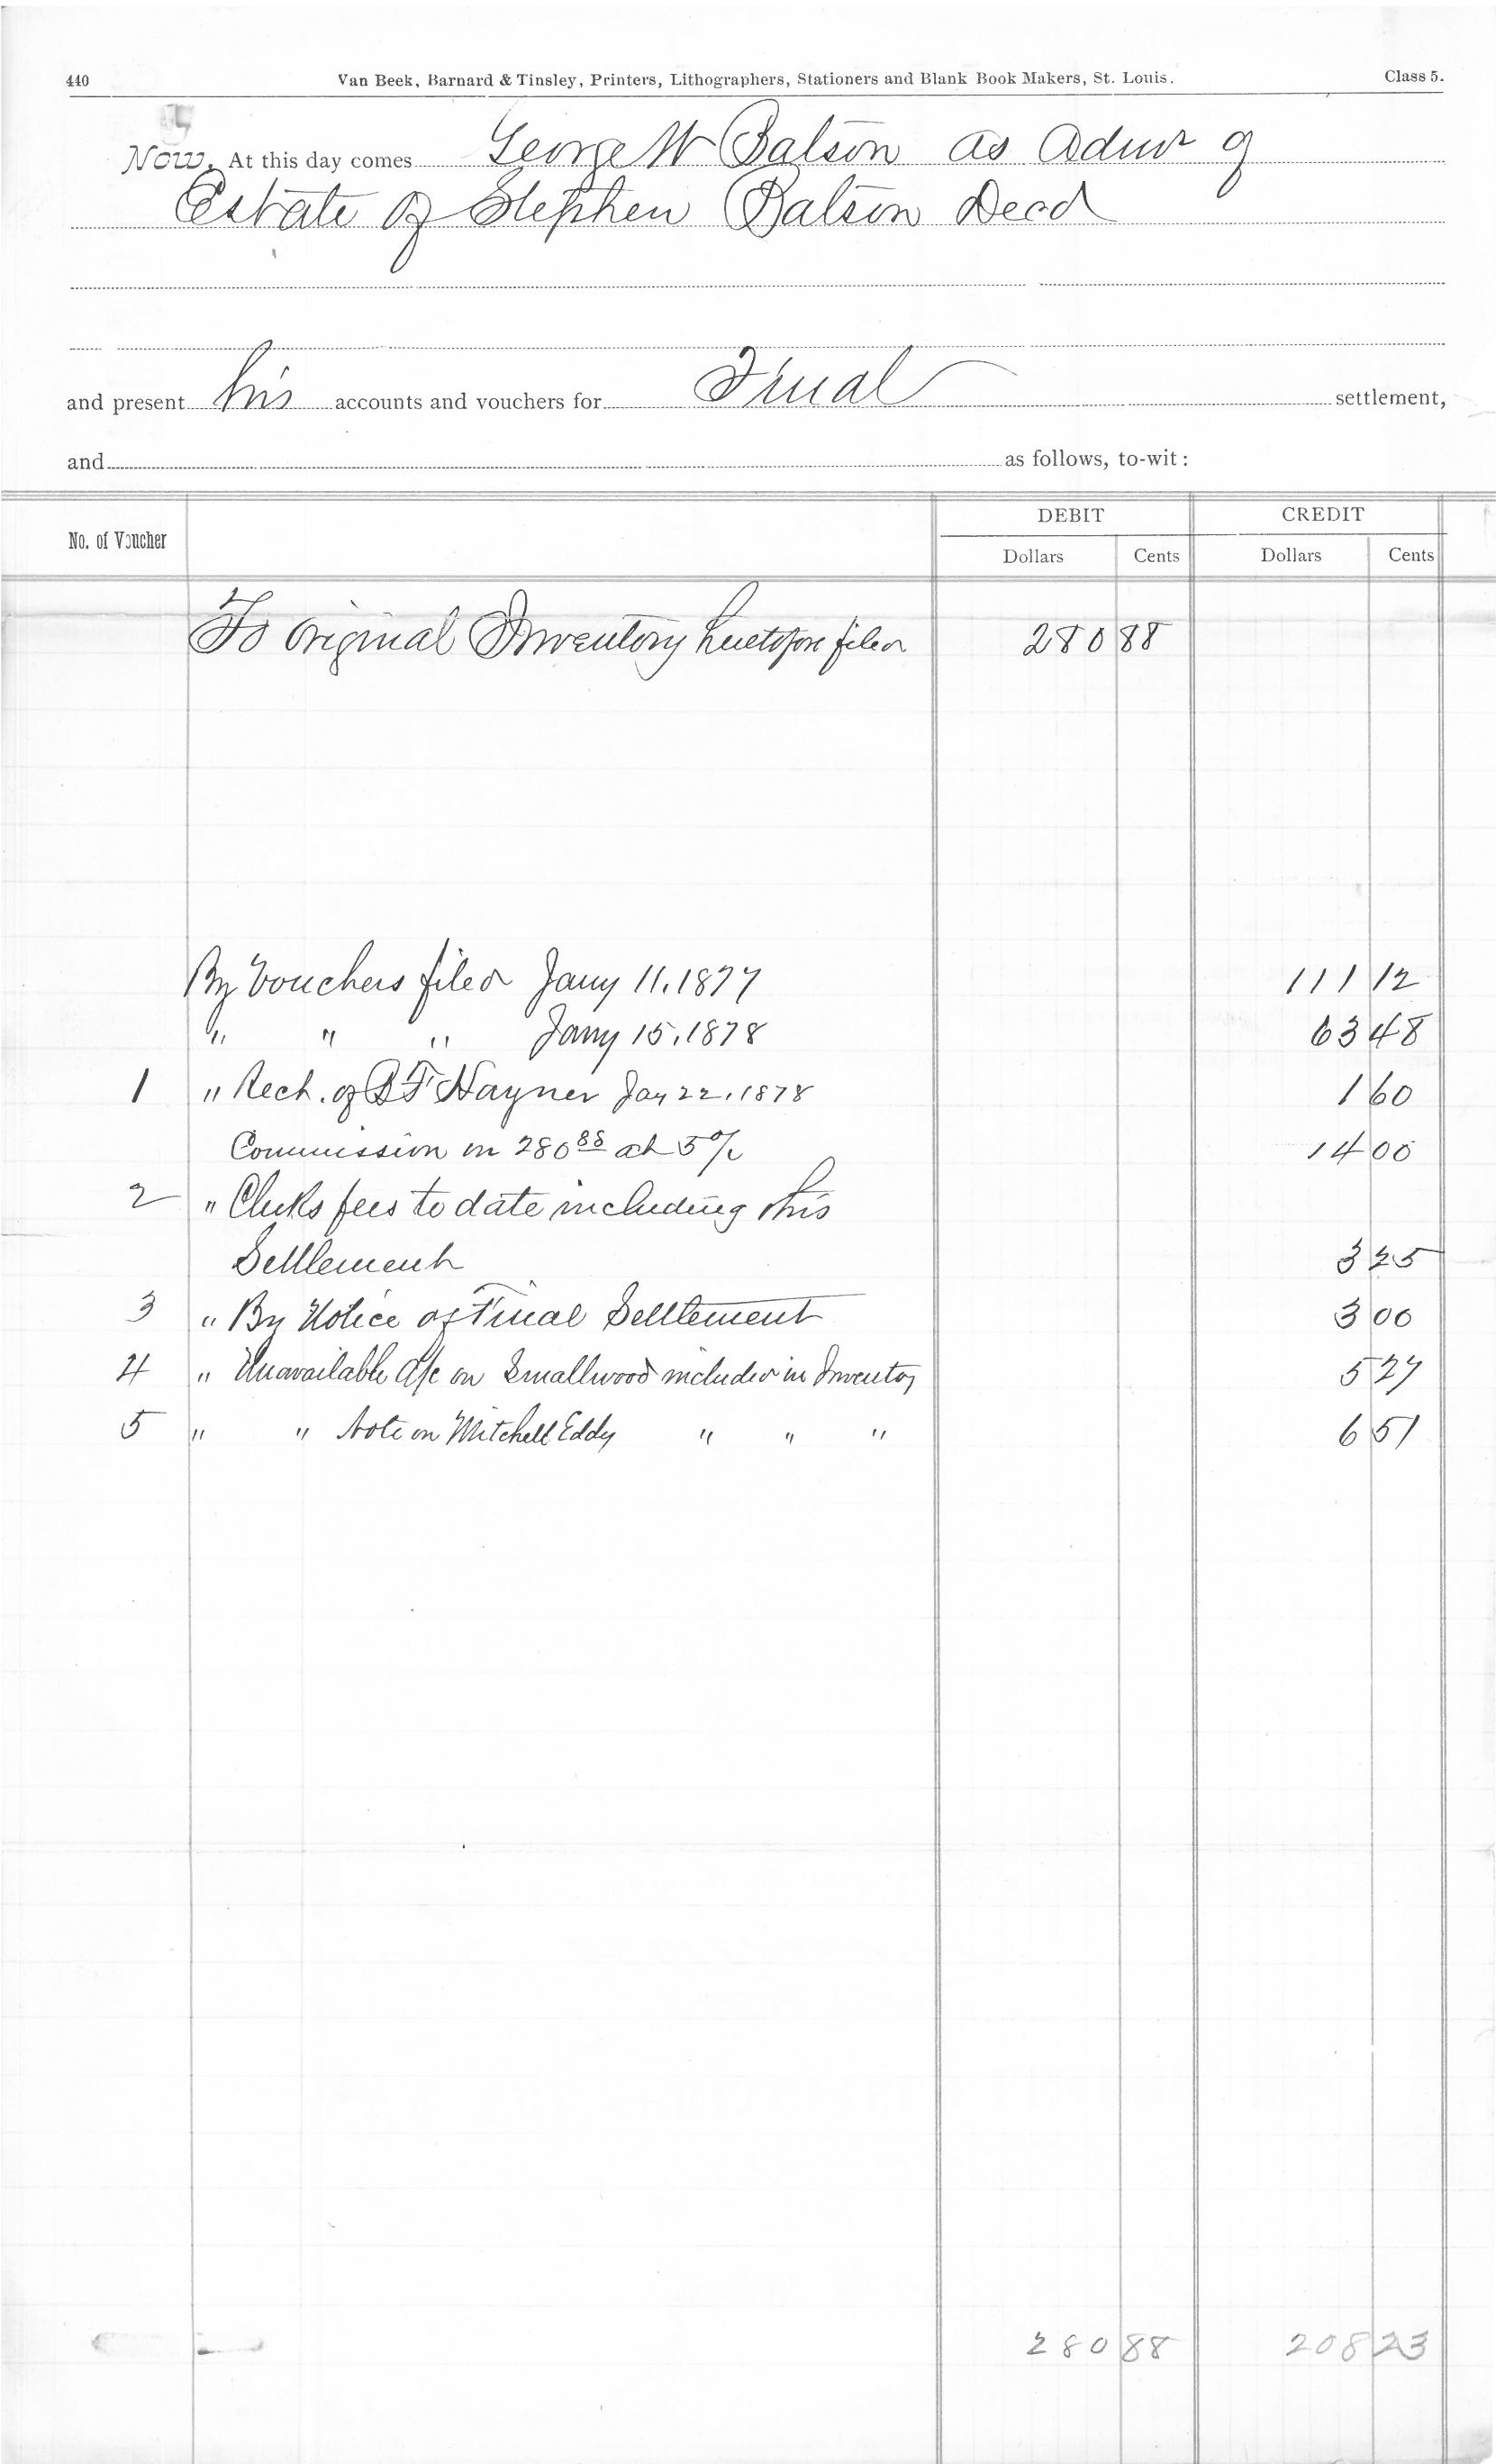 440 Van Beek, Barnard & Tinsley, Printers, Lithographers, Stationers and Blank Book Makers, St. Louis. Class 5.
Now, At this day comes George W Batson as Admr of
Estate of Stephen Batson Decd
and present his accounts and vouchers for Final settlement,
and as follows, to-wit:
No. of Voucher DEBIT CREDIT
Dollars Cents Dollars Cents
To Original Inventory heretofore filed 280 88
By Vouchers filed Jany 11, 1877 111 12
" " " Jany 15, 1878 63 48
1 " Rect. of B F Hayner Jay 22, 1878 1 60
Commission on 280 88 at 5% 14 00
2 " Clerks fees to date including this
Settlement 3 25
3 " By Notice of Final Settlement 3 00
4 " Unavailable A/c on Smallwood included in Inventoy 5 27
5 " " Note on Mitchell Eddy " " " 6 51
280 88 208 23